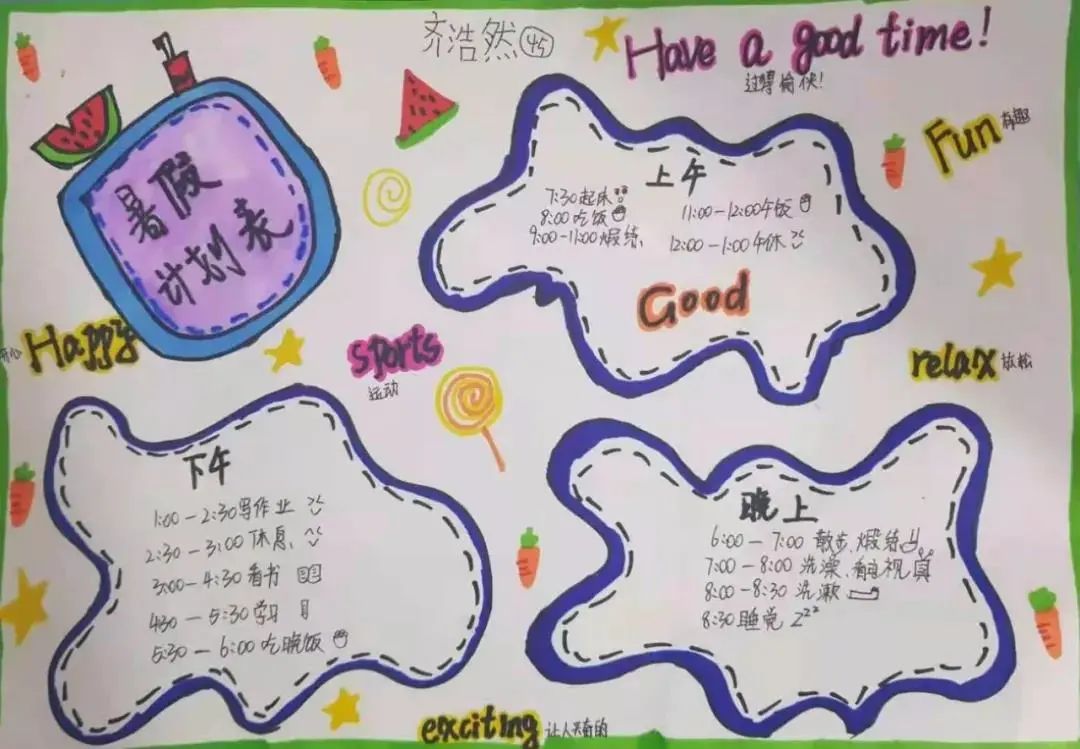 齐浩然 45
Have a good time!
过得愉快!
暑假
计划表
Fun 有趣
上午
7:30起床
8:00吃饭
9:00-11:00煅练
11:00-12:00午饭
12:00-1:00午休
Good
开心 Happy
sports
运动
relax 放松
下午
1:00-2:30写作业
2:30-3:00休息
3:00-4:30看书
430-5:30学习
5:30-6:00吃晚饭
晚上
6:00-7:00 散步、煅练
7:00-8:00 洗澡、看电视
8:00-8:30 洗漱
8:30睡觉 zzz
exciting 让人兴奋的